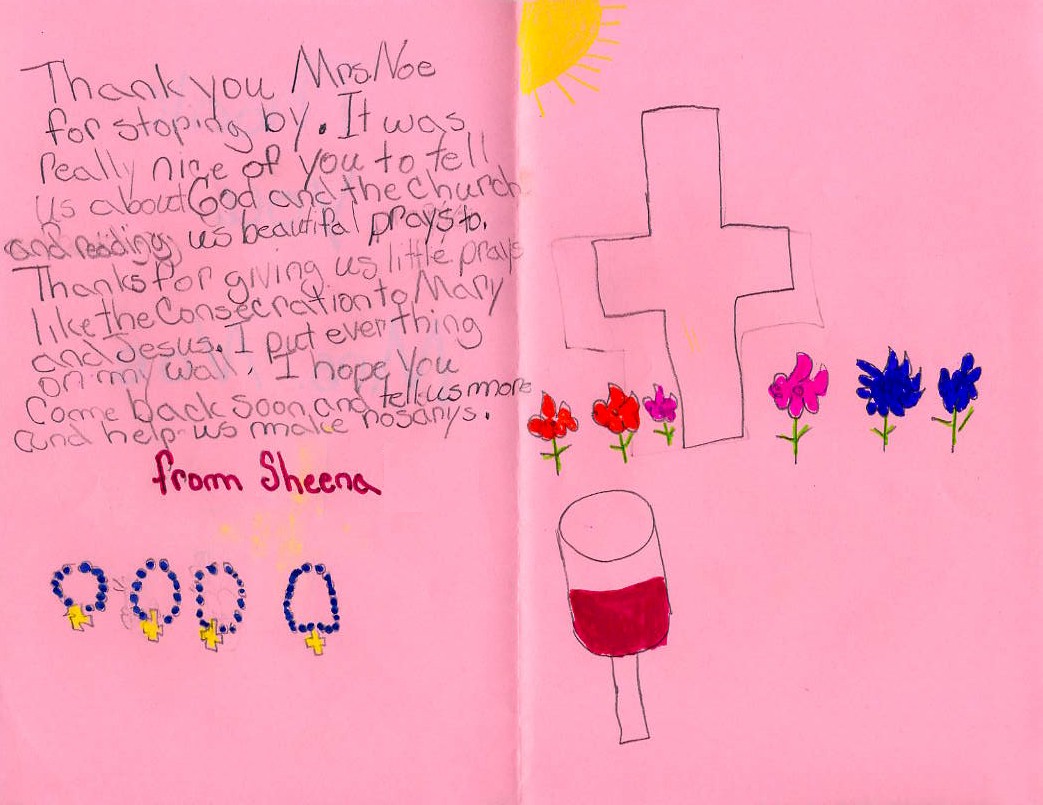 Thank you Mrs. Noe
for stoping by. It was
really nice of you to tell
us about God and the church
and reading us beautiful prays to.
Thanks for giving us little prays
like the Consecration to Mary
and Jesus. I put everthing
on my wall. I hope you
come back soon and tell us more
and help us make rosarys.
from Sheena